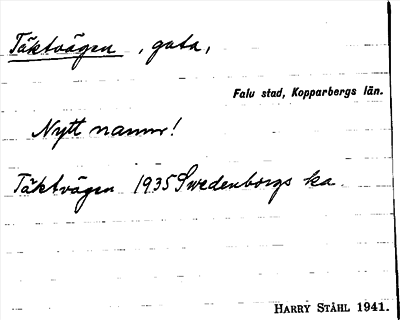 Täktvägen, gata,
Falu stad, Kopparbergs län.
Nytt namn!
Täktvägen 1935 Swedenborgs ka.
HARRY STÅHL 1941.